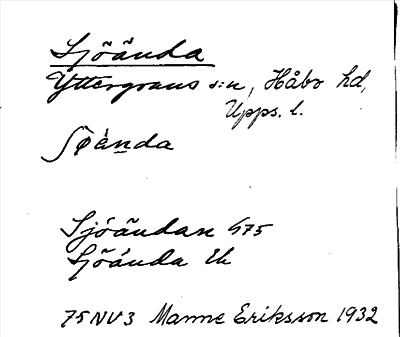 Sjöända
Yttergrans s:n, Håbo hd,
Upps. l.
ʃø̂ènda
Sjöändan G75
Sjöända Ek
75NV3 Manne Eriksson 1932